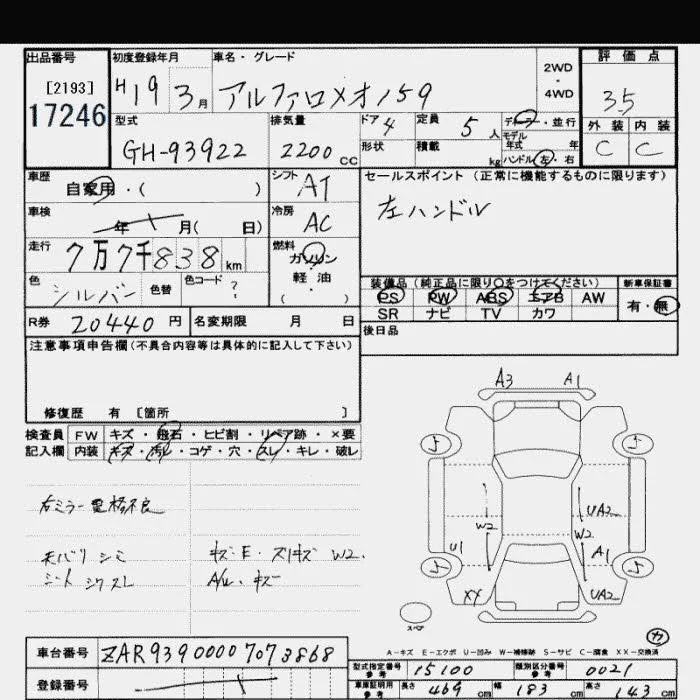 出品番号 初度登録年月 車名・グレード 2WD・4WD 評価点
[2193]
17246
H19 3月 アルファロメオ159 3.5
型式 排気量 ドア 4 定員 5人 ディーラー・並行 外装 内装
GH-93922 2200cc 形状 積載 kg モデル年式 年 ハンドル 左・右 C C
車歴 自家用・( ) シフト AT セールスポイント(正常に機能するものに限ります)
車検 年 月( 日) 冷房 AC 左ハンドル
走行 7万7千838km 燃料 ガソリン・軽油・( )
色 シルバー 色替 色コード ? 装備品(純正品に限り○をつけてください) 新車保証書
PS PW ABS エアB AW 有・無
SR ナビ TV カワ
R券 20440円 名変期限 月 日 後日品
注意事項申告欄(不具合内容等は具体的に記入して下さい)
修復歴 有 [箇所 ]
検査員 FW キズ・飛石・ヒビ割・リペア跡・×要
記入欄 内装 キズ・汚れ・コゲ・穴・スレ・キレ・破レ
右ミラー電格不良
天バリ シミ キズ・E・スリキズ W2.
シート シワスレ A/W・キズ
A3 A1
5 5
W2 UA2
U1 W2 A1
5 5
XX UA2
スペア
A-キズ E-エクボ U-凹み W-補修跡 S-サビ C-腐食 XX-交換済
車台番号 ZAR93900007073868 型式指定番号 参考 15100 類別区分番号 参考 0021
登録番号 車庫証明用 参考 長さ 469cm 幅 183cm 高さ 143cm